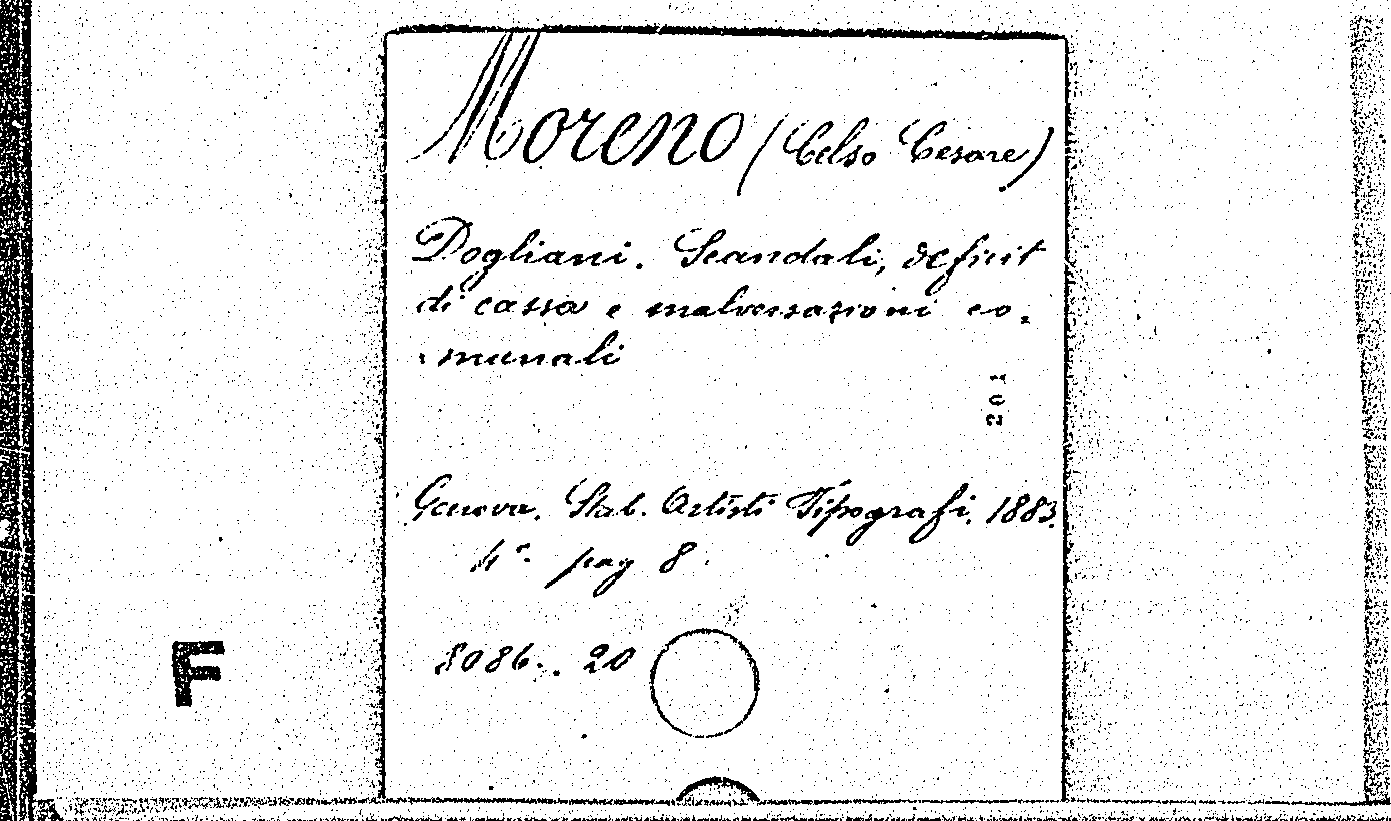 Moreno (Celso Cesare)
Dogliani. Scandali, deficit
di cassa e malversazioni co-
-munali
201
Genova. Stab. Artisti Tipografi. 1883.
4°. pag 8.
8086.. 20
F